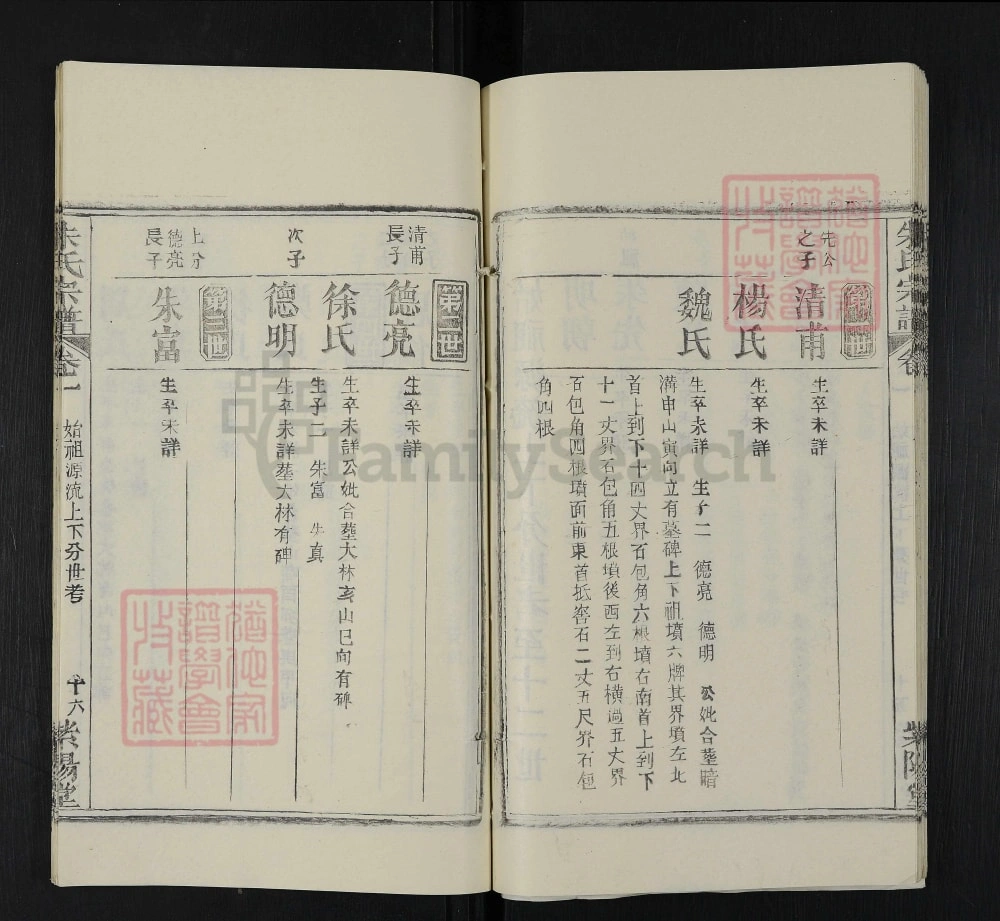 朱氏宗譜
卷一
紫陽堂
先公
之子
清甫
生卒未詳
楊氏
生卒未詳
魏氏
生卒未詳 生子二 德亮 德明 公妣合塟暗
溝申山寅向立有墓碑上下祖墳六牌其界墳左北
首上到下十四丈界石包角六根墳右南首上到下
十一丈界石包角五根墳後西左到右橫過五丈界
石包角四根墳面前東首抵窖石二丈五尺界石包
角四根
第二世
清甫
長子
德亮
生卒未詳
徐氏
生卒未詳公妣合塟大林亥山巳向有碑
生子二 朱富 朱真
次子
德明
生卒未詳塟大林有碑
第三世
上分
德亮
長子
朱富
生卒未詳
朱氏宗譜
卷一
始祖源流上下分世考
十六
紫陽堂
譜學會
收藏
FamilySearch